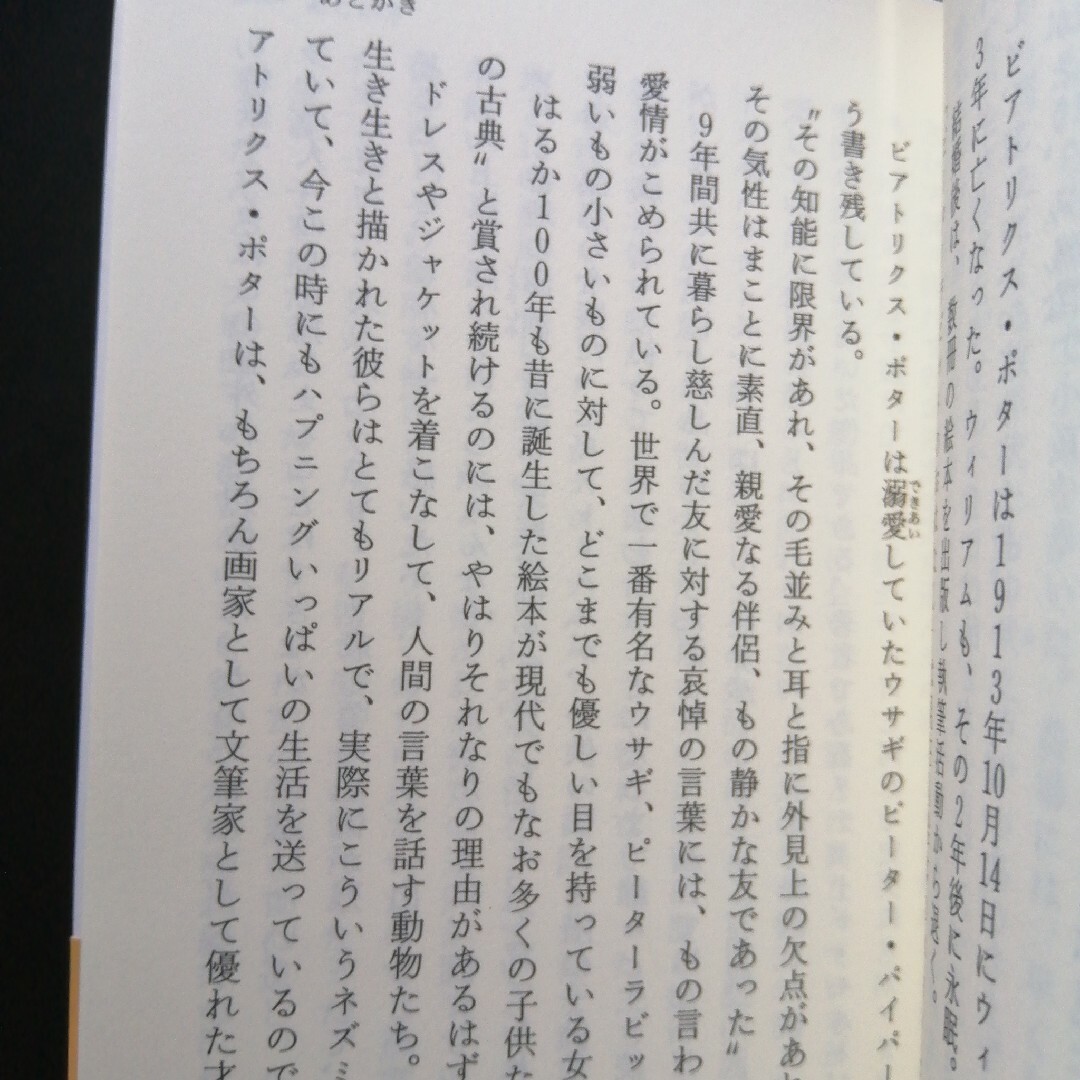 ビアトリクス・ポターは1913年10月14日にウィ
3年に亡くなった。ウィリアムも、その2年後に永眠。
結婚後は、数冊の絵本を出版し執筆活動から退く。
あとがき
ビアトリクス・ポターは溺愛していたウサギのピーター・パイパー
できあい
う書き残している。
〝その知能に限界があれ、その毛並みと耳と指に外見上の欠点があれ
その気性はまことに素直、親愛なる伴侶、もの静かな友であった〟
9年間共に暮らし慈しんだ友に対する哀悼の言葉には、もの言わ
愛情がこめられている。世界で一番有名なウサギ、ピーターラビッ
弱いもの小さいものに対して、どこまでも優しい目を持っている女
はるか100年も昔に誕生した絵本が現代でもなお多くの子供た
の古典〟と賞され続けるのには、やはりそれなりの理由があるはず
ドレスやジャケットを着こなして、人間の言葉を話す動物たち。
生き生きと描かれた彼らはとてもリアルで、実際にこういうネズミ
ていて、今この時にもハプニングいっぱいの生活を送っているので
アトリクス・ポターは、もちろん画家として文筆家として優れた才